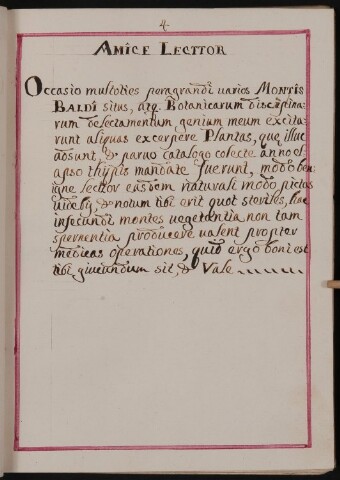 4.
AMICE LECTTOR
Occasio multoties peragrandi uarios MONTIS
BALDI situs, atq. Botanicarum disciplina-
rum delectamentum genium meum excita-
runt aliquas excerpere Plantas, que illuc
adsunt, & paruo catalogo colecte anno el-
apso thypis mandate fuerunt, modo ben-
igne lector easdem naturali modo pictas
& notum tibi erit quot steriles, hac
infecundi montes uegetantia non tam
spernentia producere ualent propter
medicas operationes, quid ergo boni est
tibi giucundum sit, & Vale